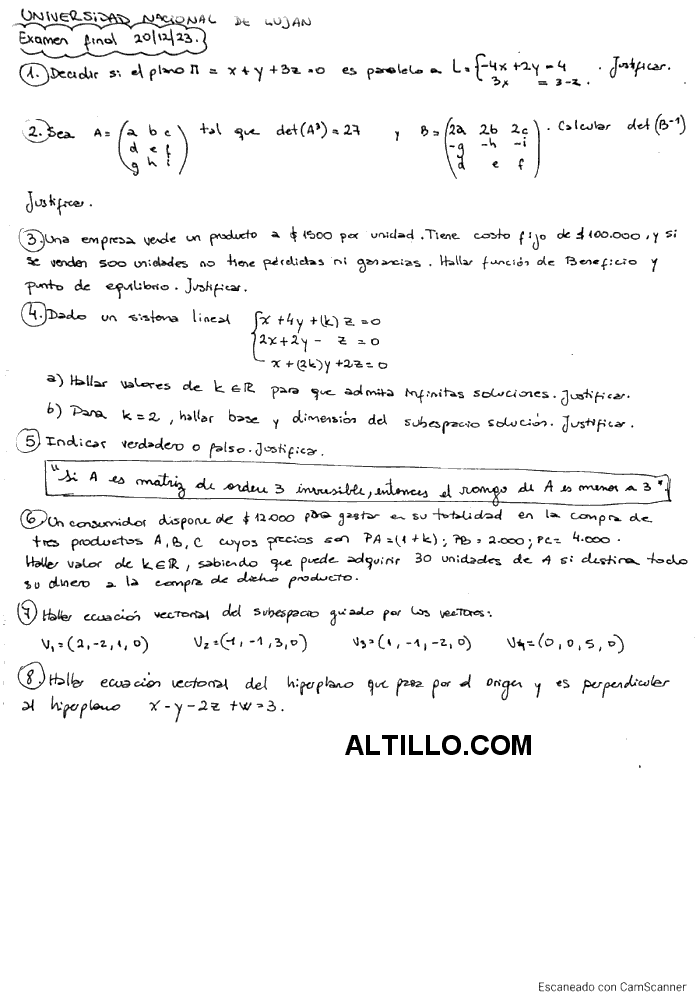 UNIVERSIDAD NACIONAL DE LUJAN
Examen final 20/12/23.
1. Decidir si el plano π = x + y + 3z = 0 es paralelo a L = { -4x + 2y = 4 . Justificar.
3x = 3 - z
2. Sea A = (a b c tal que det(A³) = 27 y B = (2a 2b 2c . Calcular det(B⁻¹)
d e f -g -h -i
g h i) d e f)
Justificar.
3. Una empresa vende un producto a $1500 por unidad. Tiene costo fijo de $100.000, y si
se venden 500 unidades no tiene pérdidas ni ganancias. Hallar función de Beneficio y
punto de equilibrio. Justificar.
4. Dado un sistema lineal { x + 4y + (k) z = 0
2x + 2y - z = 0
x + (2k)y + 2z = 0
a) Hallar valores de k ∈ R para que admita infinitas soluciones. Justificar.
b) Para k = 2, hallar base y dimensión del subespacio solución. Justificar.
5 Indicar verdadero o falso. Justificar.
"Si A es matriz de orden 3 inversible, entonces el rango de A es menor a 3".
6 Un consumidor dispone de $12.000 para gastar en su totalidad en la compra de
tres productos A, B, C cuyos precios son PA = (1+k); PB = 2.000; PC = 4.000.
Haller valor de k ∈ R, sabiendo que puede adquirir 30 unidades de A si destina todo
su dinero a la compra de dicho producto.
7 Haller ecuación vectorial del subespacio guiado por los vectores:
V1 = (2, -2, 1, 0) V2 = (-1, -1, 3, 0) V3 = (1, -1, -2, 0) V4 = (0, 0, 5, 0)
8. Haller ecuación vectorial del hiperplano que pasa por el origen y es perpendicular
al hiperplano x - y - 2z + w = 3.
ALTILLO.COM
Escaneado con CamScanner